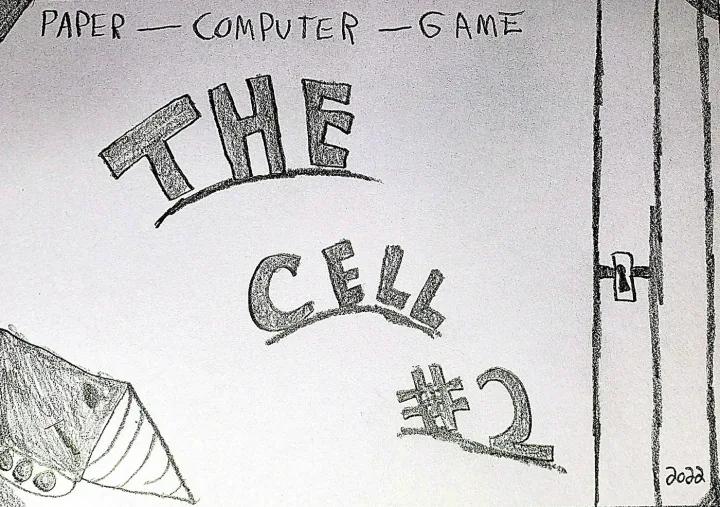 PAPER — COMPUTER — GAME
THE
CELL
#2
2022